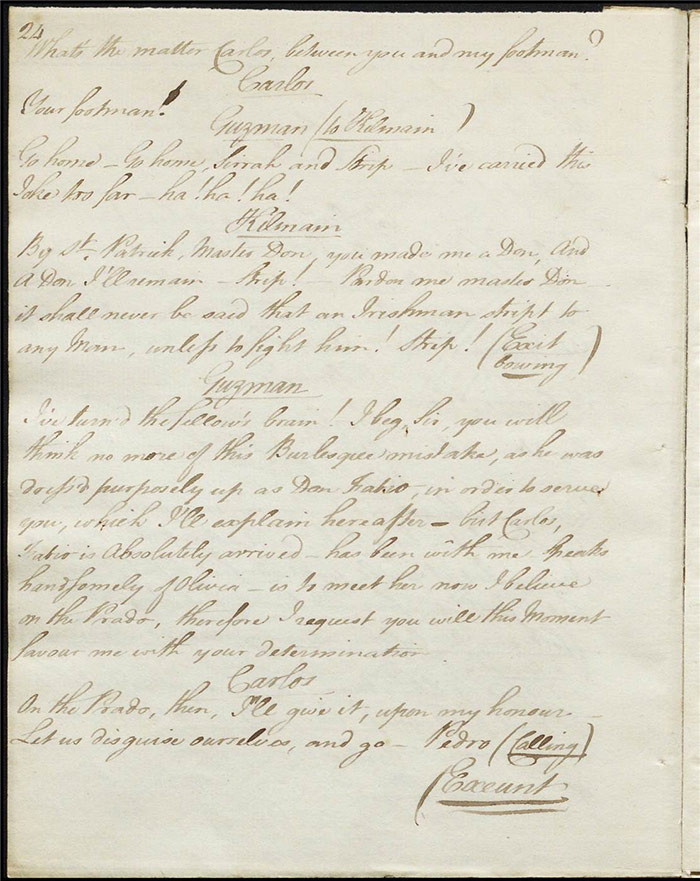 24
What's the matter Carlos, between you and my footman?
Carlos
Your footman!
Guzman (to Kilmain)
Go home – Go home, Sirrah and Strip – I've carried this
Joke too far – ha! ha! ha!
Kilmain
By St. Patrick, Master Don, you made me a Don, And
A Don I'll remain – Strip! – Pardon me master Don
it shall never be said that an Irishman stript to
any Man, unless to fight him! Strip! (Exit
bowing)
Guzman
I've turn'd the fellow's brain! I beg, Sir, you will
think no more of this Burlesque mistake, as he was
dress'd purposely up as Don Fabio, in order to serve
you, which I'll explain hereafter – but Carlos,
Fabio is Absolutely arrived – has been with me speaks
handsomely of Olivia – is to meet her now I believe
on the Prado, therefore I request you will this Moment
favour me with your determination
Carlos
On the Prado, then, I'll give it, upon my honour –
Let us disguise ourselves, and go – Pedro (Calling)
(Exeunt